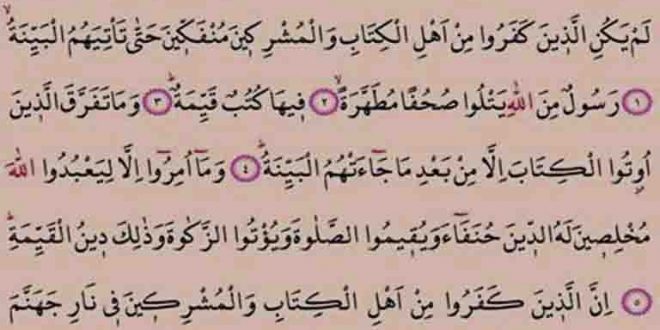 لَمْ يَكُنِ الَّذٖينَ كَفَرُوا مِنْ اَهْلِ الْكِتَابِ وَالْمُشْرِكٖينَ مُنْفَكّٖينَ حَتّٰى تَاْتِيَهُمُ الْبَيِّنَةُۙ
١ رَسُولٌ مِنَ اللّٰهِ يَتْلُوا صُحُفًا مُطَهَّرَةًۙ ٢ فٖيهَا كُتُبٌ قَيِّمَةٌؕ ٣ وَمَا تَفَرَّقَ الَّذٖينَ
اُو۫تُوا الْكِتَابَ اِلَّا مِنْ بَعْدِ مَا جَٓاءَتْهُمُ الْبَيِّنَةُؕ ٤ وَمَٓا اُمِرُٓوا اِلَّا لِيَعْبُدُوا اللّٰهَ
مُخْلِصٖينَ لَهُ الدّٖينَ حُنَفَٓاءَ وَيُقٖيمُوا الصَّلٰوةَ وَيُؤْتُوا الزَّكٰوةَ وَذٰلِكَ دٖينُ الْقَيِّمَةِؕ
٥ اِنَّ الَّذٖينَ كَفَرُوا مِنْ اَهْلِ الْكِتَابِ وَالْمُشْرِكٖينَ فٖى نَارِ جَهَنَّمَ